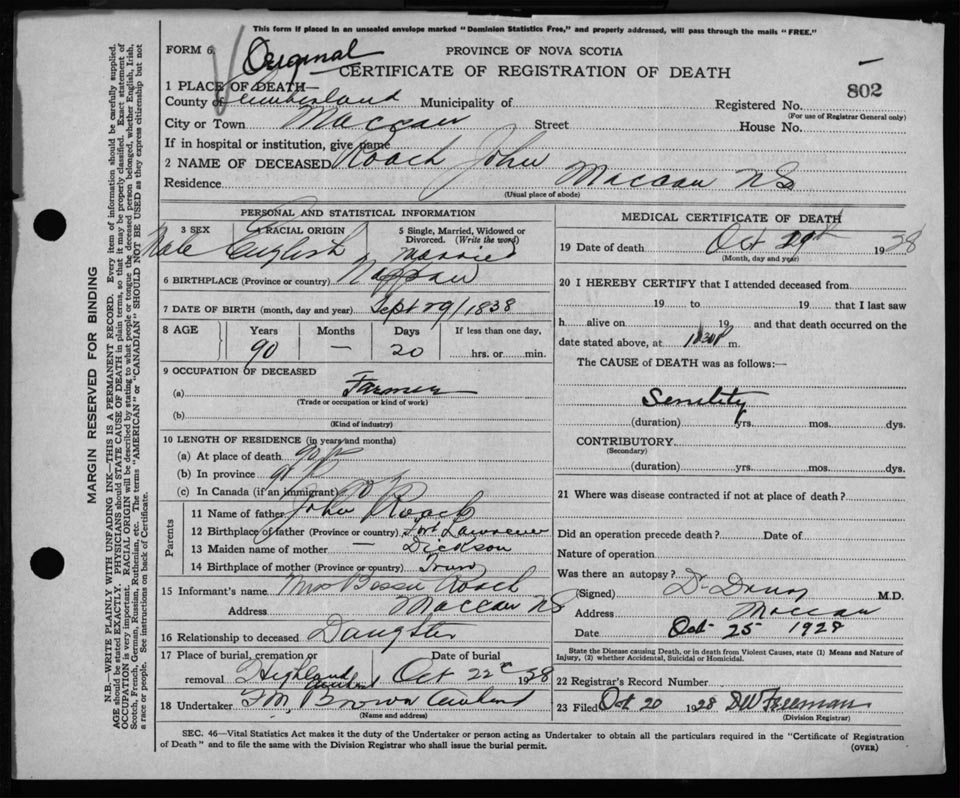 This form if placed in an unsealed envelope marked "Dominion Statistics Free," and properly addressed, will pass through the mails "FREE."
FORM 6 Original PROVINCE OF NOVA SCOTIA
CERTIFICATE OF REGISTRATION OF DEATH
1 PLACE OF DEATH— 802
County of Cumberland Municipality of Registered No.
(For use of Registrar General only)
City or Town Maccan Street House No.
If in hospital or institution, give name
2 NAME OF DECEASED Roach John
Residence Maccan NS
(Usual place of abode)
PERSONAL AND STATISTICAL INFORMATION
3 SEX 4 RACIAL ORIGIN 5 Single, Married, Widowed or Divorced. (Write the word)
Male English Married
6 BIRTHPLACE (Province or country) Nappan
7 DATE OF BIRTH (month, day and year) Sept 29/1838
8 AGE Years Months Days If less than one day,
90 — 20 hrs. or min.
9 OCCUPATION OF DECEASED
(a) Farmer
(Trade or occupation or kind of work)
(b)
(Kind of industry)
10 LENGTH OF RESIDENCE (in years and months)
(a) At place of death 90
(b) In province 90
(c) In Canada (if an immigrant) 90
Parents
11 Name of father John Roach
12 Birthplace of father (Province or country) Fort Lawrence
13 Maiden name of mother — Dickson
14 Birthplace of mother (Province or country) Truro
15 Informant's name Mrs Bessie Roach
Address Maccan NS
16 Relationship to deceased Daughter
17 Place of burial, cremation or removal Date of burial
Highland Amherst Oct 22 1928
18 Undertaker Brown Amherst
(Name and address)
MEDICAL CERTIFICATE OF DEATH
19 Date of death Oct 19th 1928
(Month, day and year)
20 I HEREBY CERTIFY that I attended deceased from
19 to 19 that I last saw
h alive on 19 and that death occurred on the
date stated above, at m.
The CAUSE of DEATH was as follows:—
Senility
(duration) yrs. mos. dys.
CONTRIBUTORY
(Secondary)
(duration) yrs. mos. dys.
21 Where was disease contracted if not at place of death?
Did an operation precede death? Date of
Nature of operation
Was there an autopsy?
(Signed) Dr M.D.
Address Maccan
Date Oct 25 1928
State the Disease causing Death, or in death from Violent Causes, state (1) Means and Nature of Injury, (2) whether Accidental, Suicidal or Homicidal.
22 Registrar's Record Number
23 Filed Oct 20 1928 Freeman
(Division Registrar)
SEC. 46—Vital Statistics Act makes it the duty of the Undertaker or person acting as Undertaker to obtain all the particulars required in the "Certificate of Registration
of Death" and to file the same with the Division Registrar who shall issue the burial permit. (OVER)
MARGIN RESERVED FOR BINDING
N.B.—WRITE PLAINLY WITH UNFADING INK—THIS IS A PERMANENT RECORD. Every item of information should be carefully supplied.
AGE should be stated EXACTLY. PHYSICIANS should STATE CAUSE OF DEATH in plain terms, so that it may be properly classified. Exact statement of
OCCUPATION is very important. RACIAL ORIGIN will be described by stating to what people or tongue the deceased person belonged, whether English, Irish,
Scotch, French, German, Russian, Ruthenian, etc. The terms "AMERICAN" or "CANADIAN" SHOULD NOT BE USED as they express citizenship but not
a race or people. See instructions on back of Certificate.